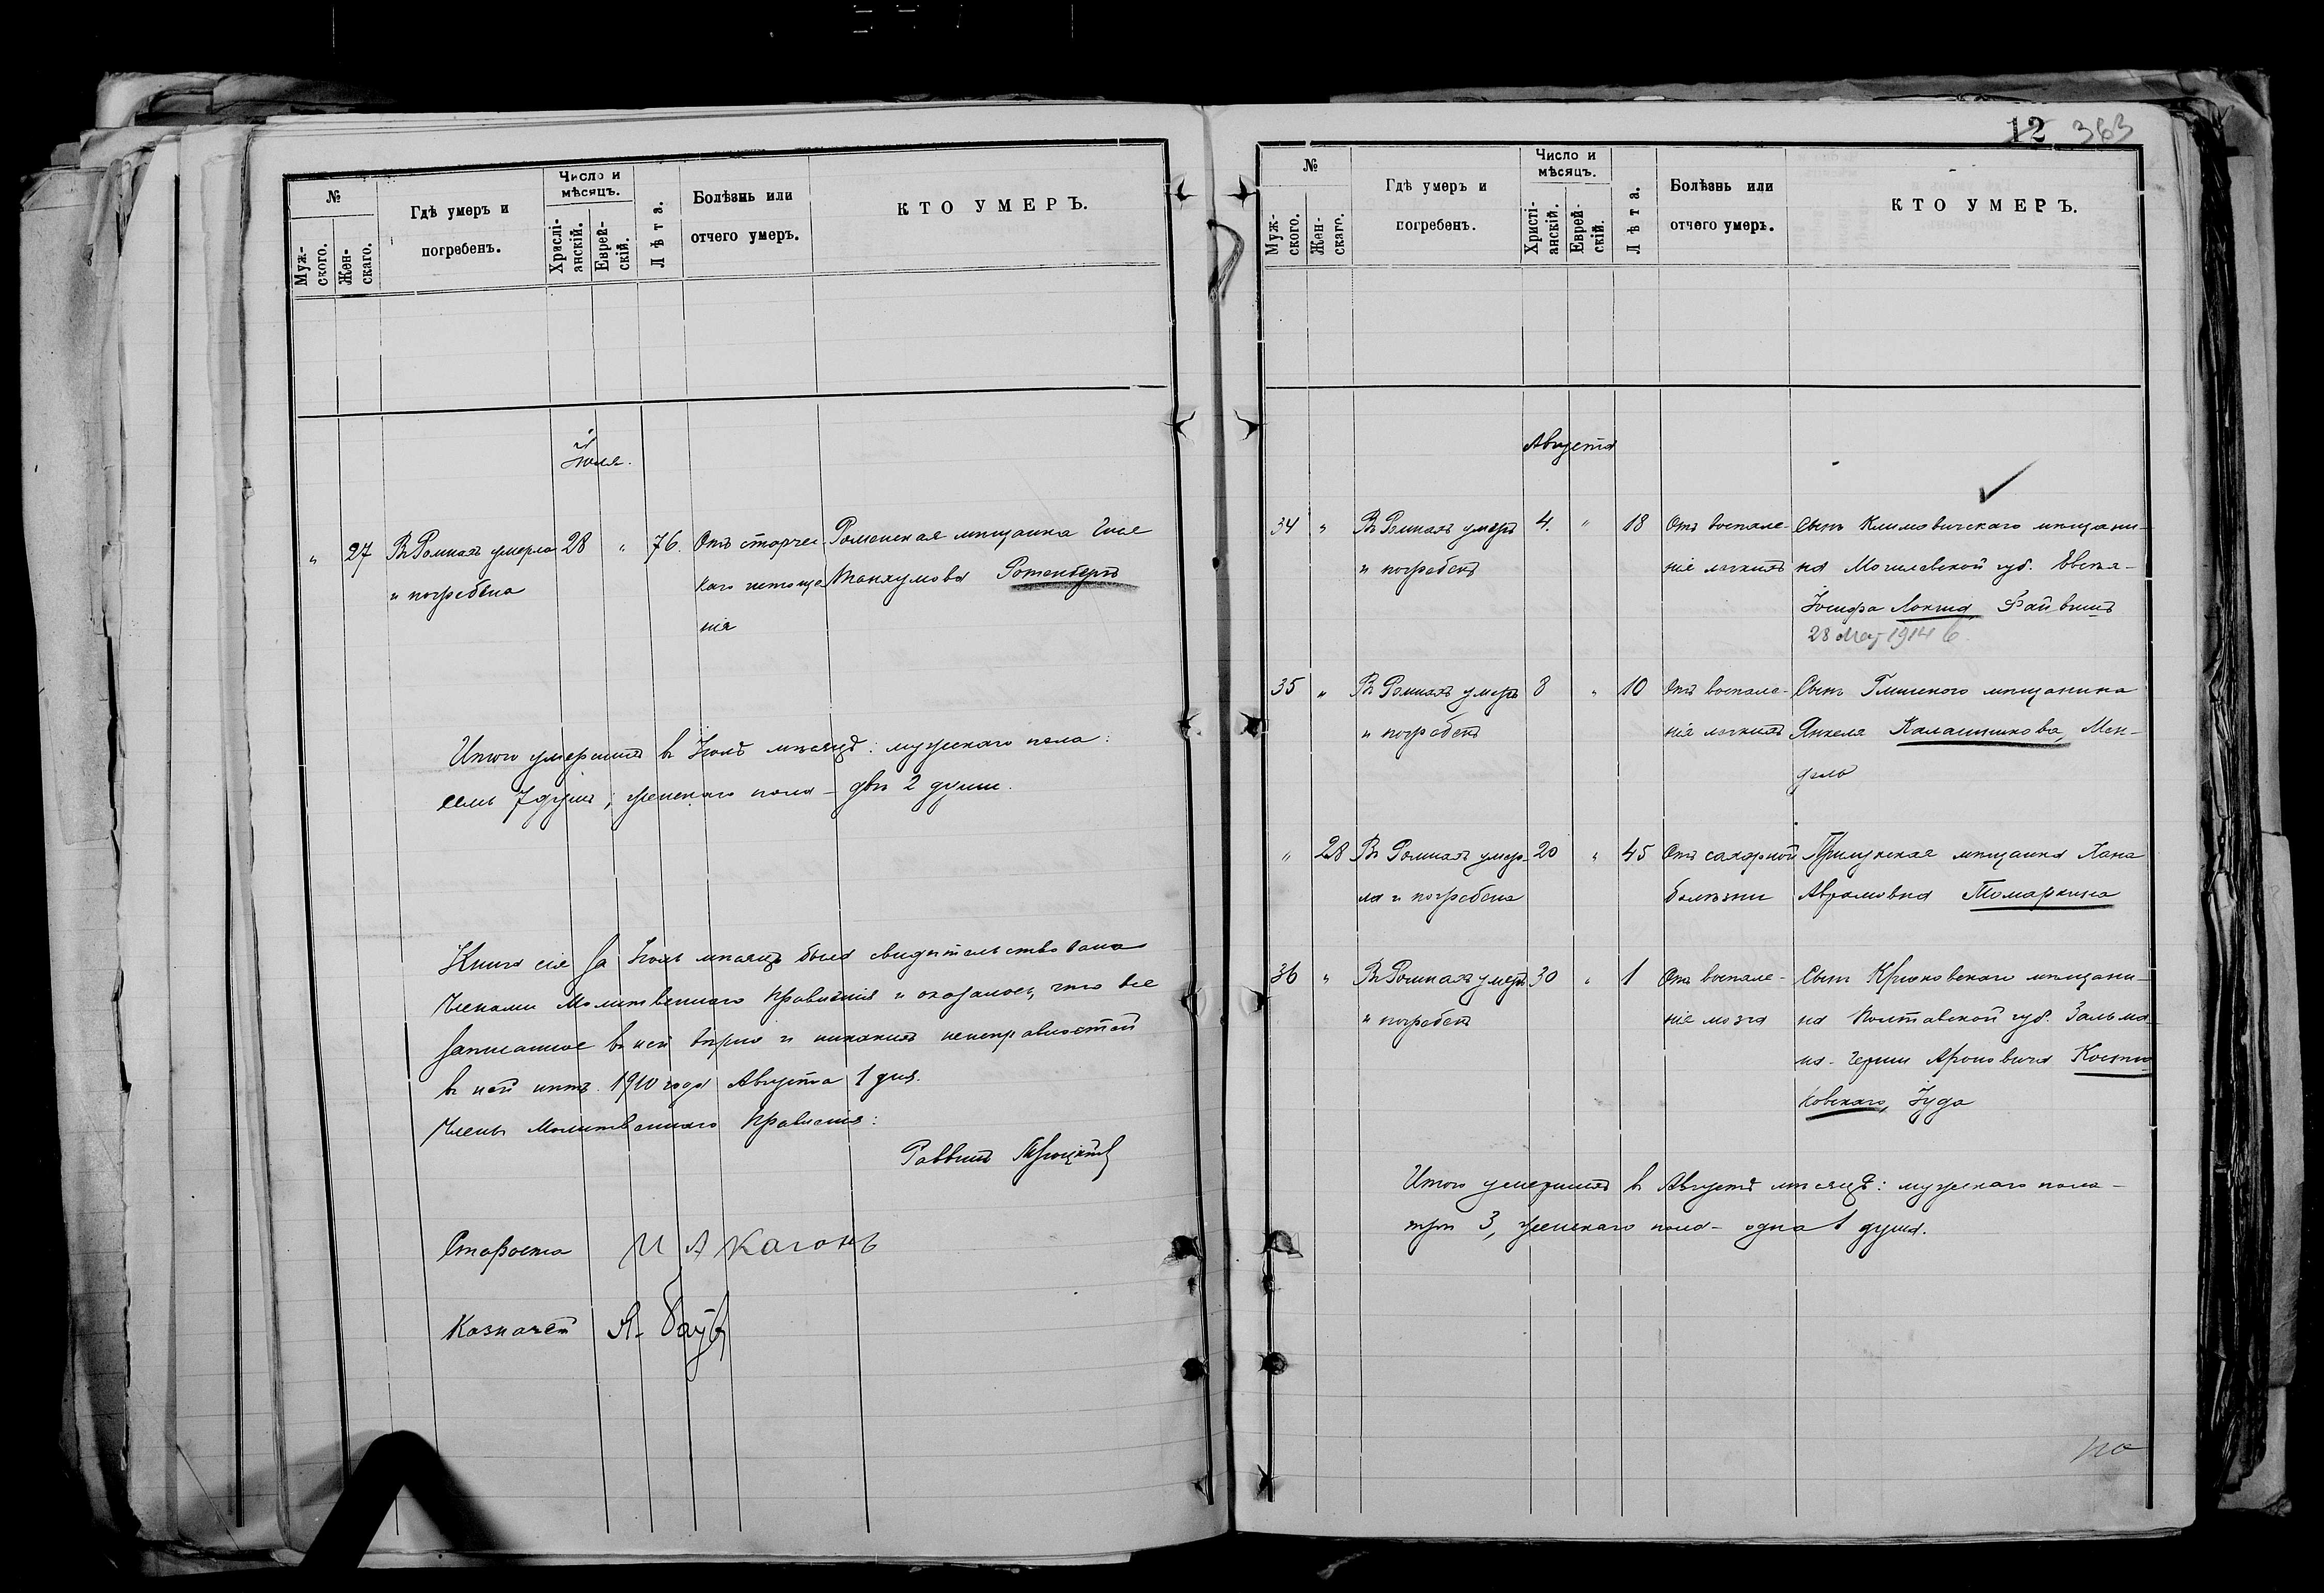 №
Муж-
ского.
Жен-
скаго.
Гдѣ умеръ и
погребенъ.
Число и
мѣсяцъ.
Христі-
анскій.
Еврей-
скій.
Лѣта.
Болѣзнь или
отчего умеръ.
КТО УМЕРЪ.
Іюля.
" 27 Въ Ромнахъ умерла 28 " 76. Отъ старчес Роменская мѣщанка
и погребена каго истоще Танхумова Ротенбергъ
нія
Итого умершихъ въ Іюлѣ мѣсяцѣ: мужескаго пола:
семь 7 душъ, женскаго пола – двѣ 2 души.
Книга сія за Іюль мѣсяцъ была свидѣтельствована
Членами Молитвеннаго Правленія и оказалось, что все
записанное въ ней вѣрно и никакихъ неисправностей
въ ней нѣтъ. 1910 года Августа 1 дня.
Члены Молитвеннаго Правленія:
Раввинъ
Староста И А Каганъ
Казначей Я.
12 363
№
Муж-
ского.
Жен-
скаго.
Гдѣ умеръ и
погребенъ.
Число и
мѣсяцъ.
Христі-
анскій.
Еврей-
скій.
Лѣта.
Болѣзнь или
отчего умеръ.
КТО УМЕРЪ.
Августа
34 " Въ Ромнахъ умеръ 4. " 18 Отъ воспале- Сынъ Климовичскаго мѣщани-
и погребенъ нія легкихъ на Могилевской губ. Евсея-
Іосифа Локшина, Файвишъ
28 1914
35 " Въ Ромнахъ умеръ 8 " 10 Отъ воспале- Сынъ Глинскаго мѣщанина
и погребенъ нія легкихъ Янкеля Калашникова, Мен-
дель
" 28 Въ Ромнахъ умер- 20 " 45 Отъ сахарной Прилукская мѣщанка Хана
ла и погребена болѣзни Аврамовна Томаркина
36 " Въ Ромнахъ умеръ 30 " 1 Отъ воспале- Сынъ Крюковскаго мѣщани-
и погребенъ нія мозга на Полтавской губ. Зальма-
на- Герши Ароновича
ковскаго, Іуда
Итого умершихъ въ Августѣ мѣсяцѣ: мужескаго пола –
три 3, женскаго пола – одна 1 душа.